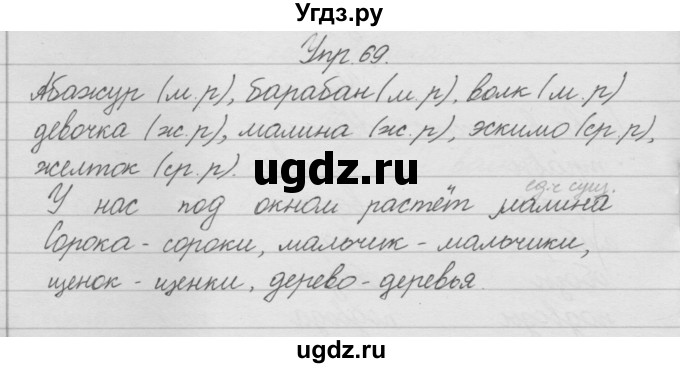 Угдз.ру
Упр. 69.
Абажур (м.р), барабан (м.р), волк (м.р)
девочка (ж.р), малина (ж.р), эскимо (ср.р),
желток (ср.р).
ugdz.ru
ед.ч сущ.
У нас под окном растёт малина
Сорока - сороки, мальчик - мальчики,
щенок - щенки, дерево - деревья.
ugdz.ru